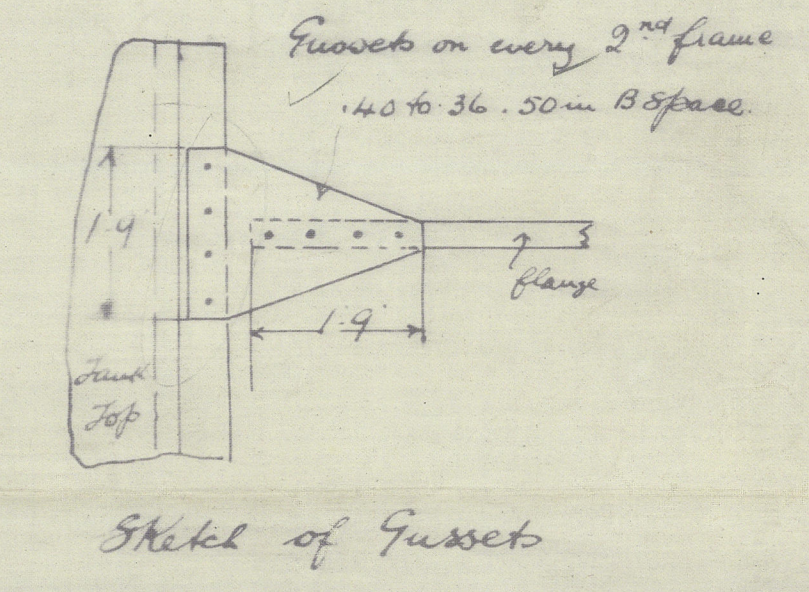 Gussets on every 2nd frame
.40 to .36 . 50 in B Space.
1-9
flange
1-9
Tank
Top
Sketch of Gussets